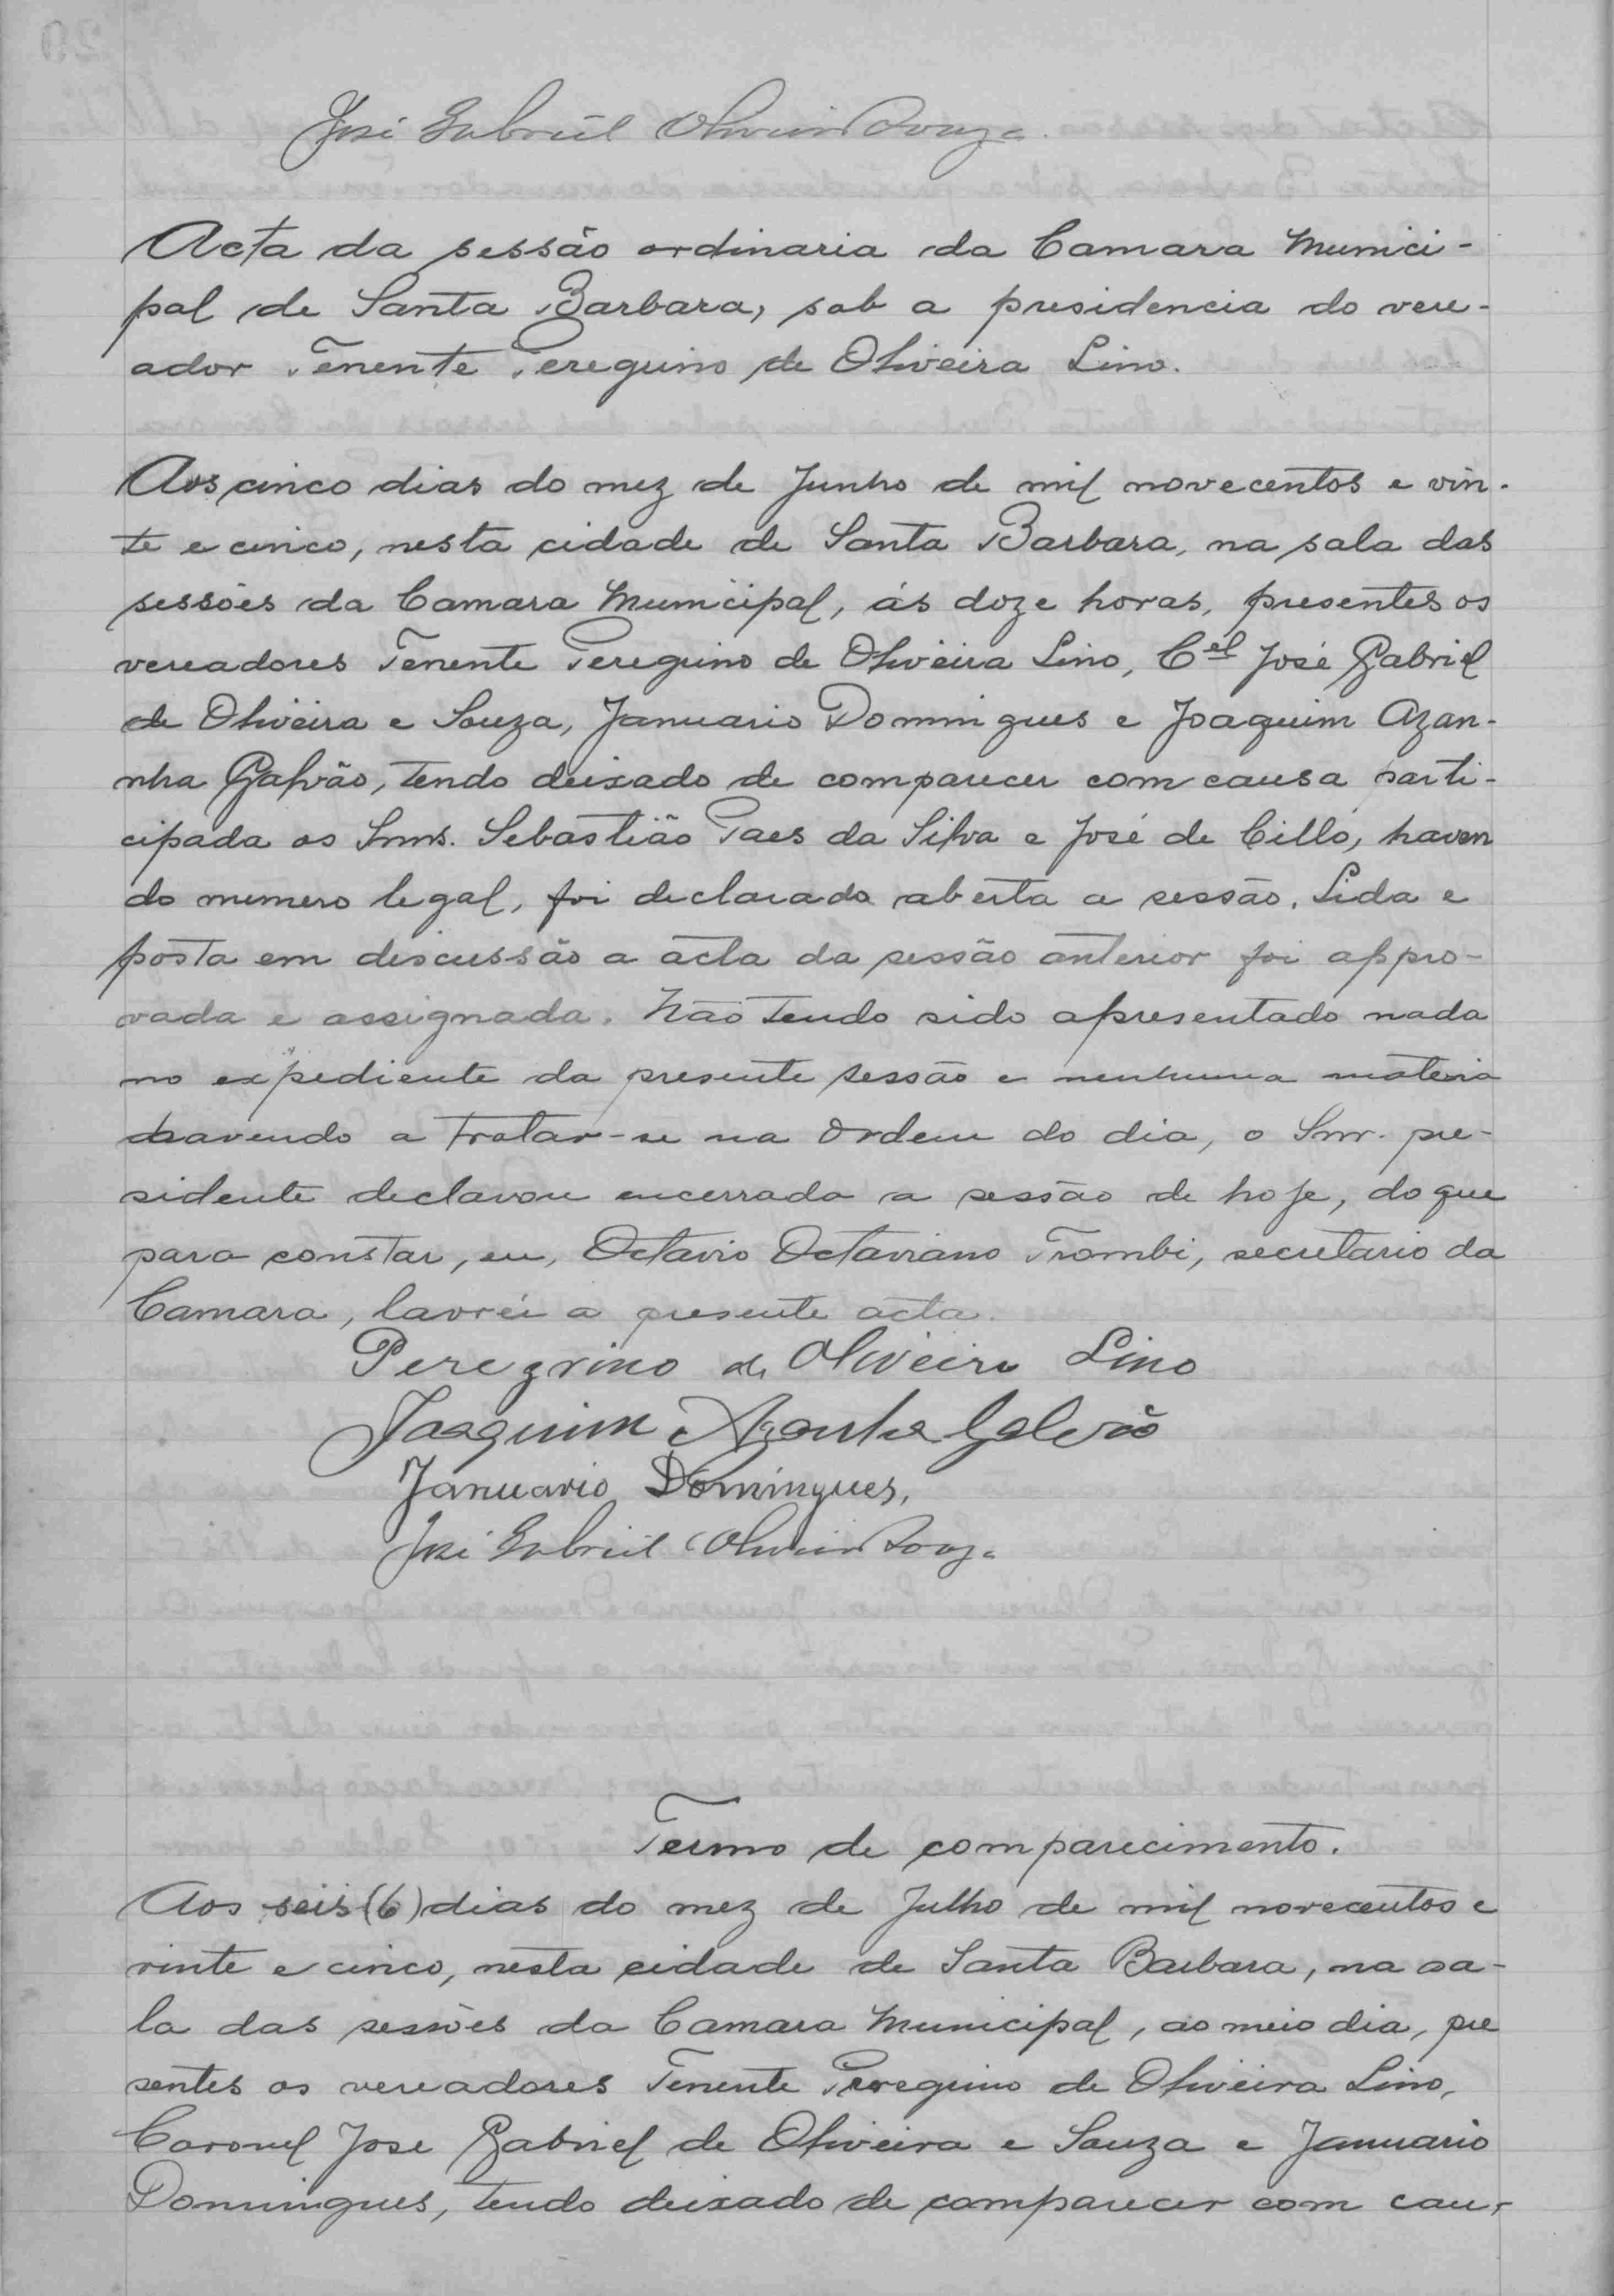 José Gabriel Oliveira Souza.
Acta da sessão ordinaria da Camara Munici-
pal de Santa Barbara, sob a presidencia do vere-
ador Tenente Peregrino de Oliveira Lino.
Aos cinco dias do mez de Junho de mil novecentos e vin-
te e cinco, nesta cidade de Santa Barbara, na sala das
sessões da Camara Municipal, ás doze horas, presentes os
vereadores Tenente Peregrino de Oliveira Lino, Cel José Gabriel
de Oliveira e Souza, Januario Domingues e Joaquim Azan-
nha Galvão, tendo deixado de comparecer com causa parti-
cipada os Snrs. Sebastião Paes da Silva e José de Cillo, haven
do numero legal, foi declarada aberta a sessão. Lida e
posta em discussão a acta da sessão anterior foi appro-
vada e assignada. Não tendo sido apresentado nada
no expediente da presente sessão e nenhuma materia
havendo a tratar-se na ordem do dia, o Snr. pre-
sidente declarou encerrada a sessão de hoje, do que
para constar, eu, Octavio Octaviano Trombi, secretario da
Camara, lavrei a presente acta.
Peregrino de Oliveira Lino
Joaquim Azanha Galvão
Januario Domingues,
José Gabriel Oliveira Souza
Termo de comparecimento.
Aos seis (6) dias do mez de Julho de mil novecentos e
vinte e cinco, nesta cidade de Santa Barbara, na sa-
la das sessões da Camara Municipal, ao meio dia, pre
sentes os vereadores Tenente Peregrino de Oliveira Lino,
Coronel Jose Gabriel de Oliveira e Souza e Januario
Domingues, tendo deixado de comparecer com cau-